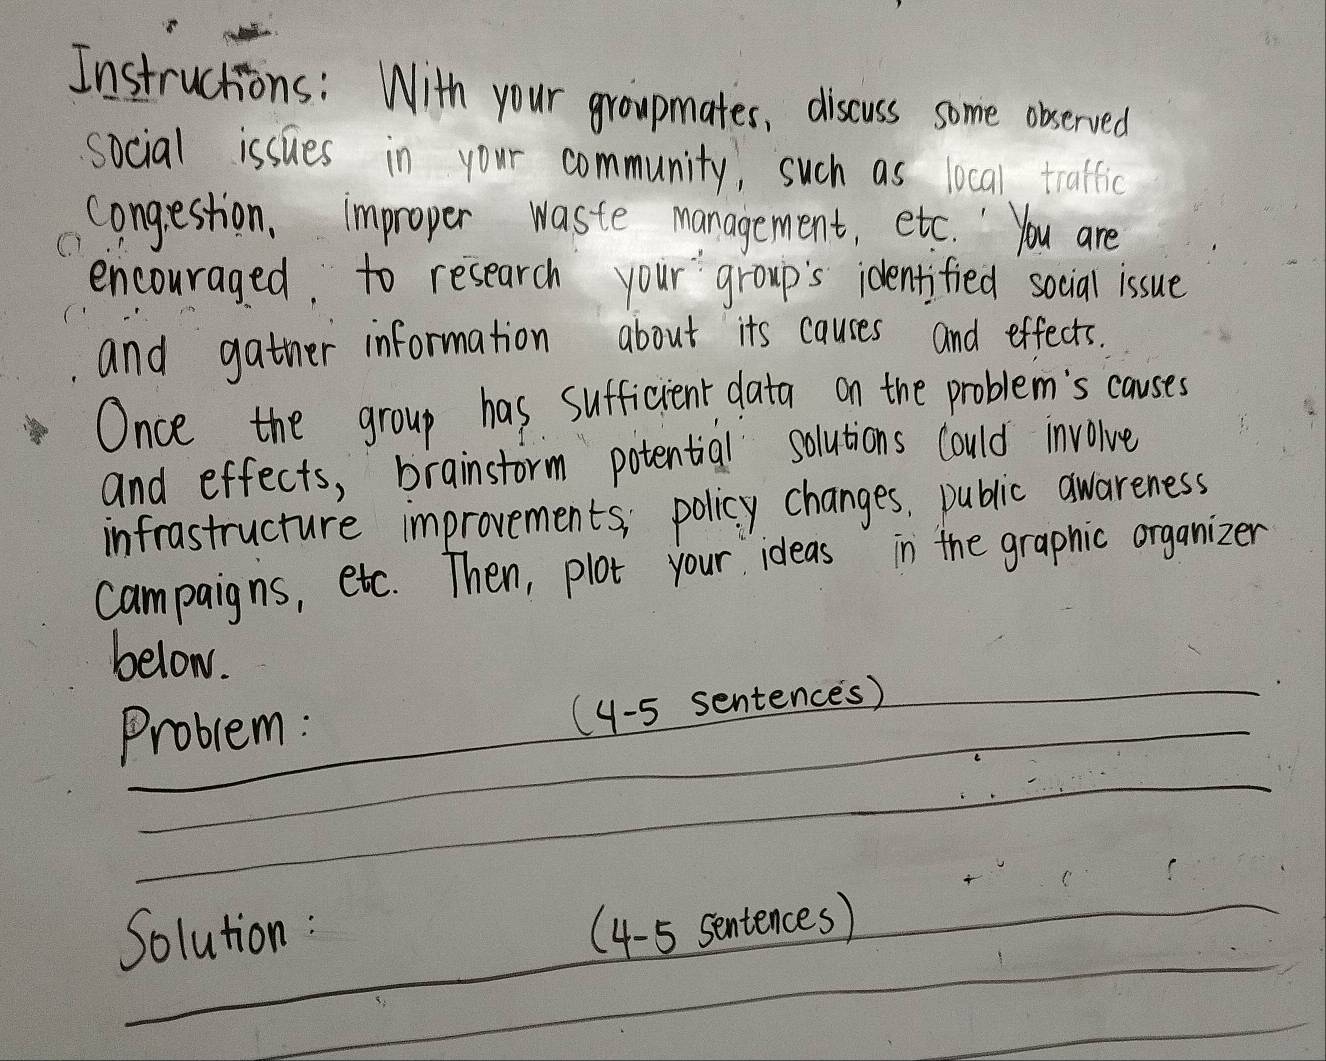 Instructions: With your groupmates, discuss some observed
social issues in your community, such as local traffic
congestion, improper waste management, etc. You are
encouraged, to research your group's identified social issue
and gather information about its causes and effects.
Once the group has sufficient data on the problem's causes
and effects, brainstorm potential solutions could involve
infrastructure improvements, policy changes, public awareness
campaigns, etc. Then, plot your ideas in the graphic organizer
below.
Problem: (4-5 sentences)
Solution: (4-5 sentences)